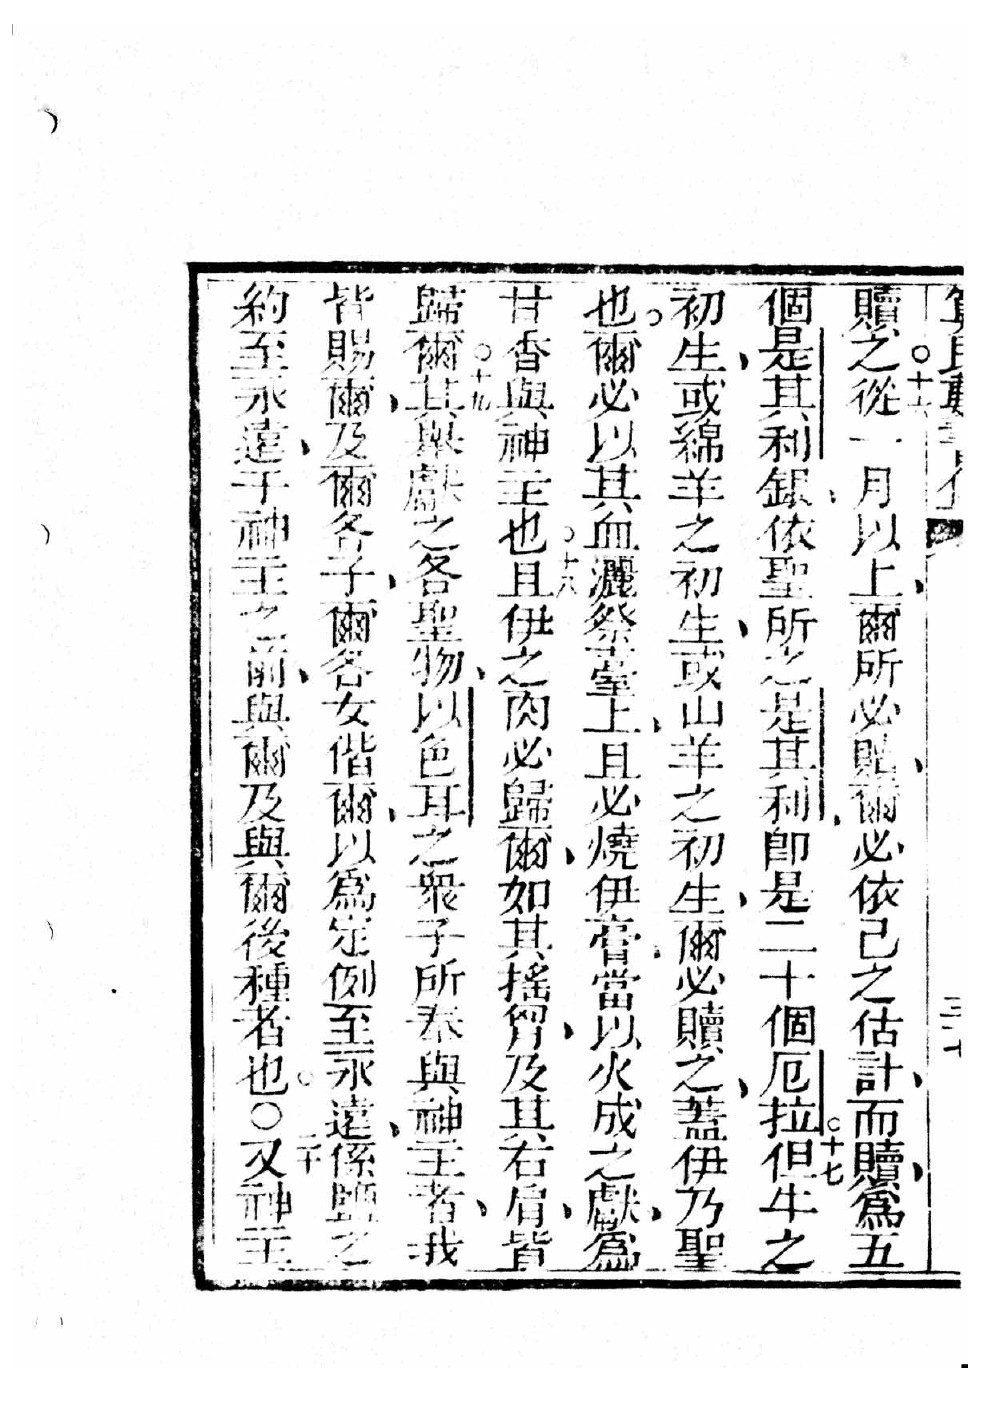 贖之○十六從一月以上爾所必貼爾必依己之估計而贖爲五
個是其利銀依聖所之是其利卽是二十個厄拉○十七但牛之
初生或綿羊之初生或山羊之初生爾必贖之蓋伊乃聖
也爾必以其血灑祭臺上且必燒伊膏當以火成之獻爲
甘香與神主也○十八且伊之肉必歸爾如其搖胷及其右肩皆
歸爾○十九其舉獻之各聖物以色耳之衆子所奉與神主者我
皆賜爾及爾各子爾各女偕爾以爲定例至永遠係鹽之
約至永遠于神主之前與爾及與爾後種者也○二十〇又神主